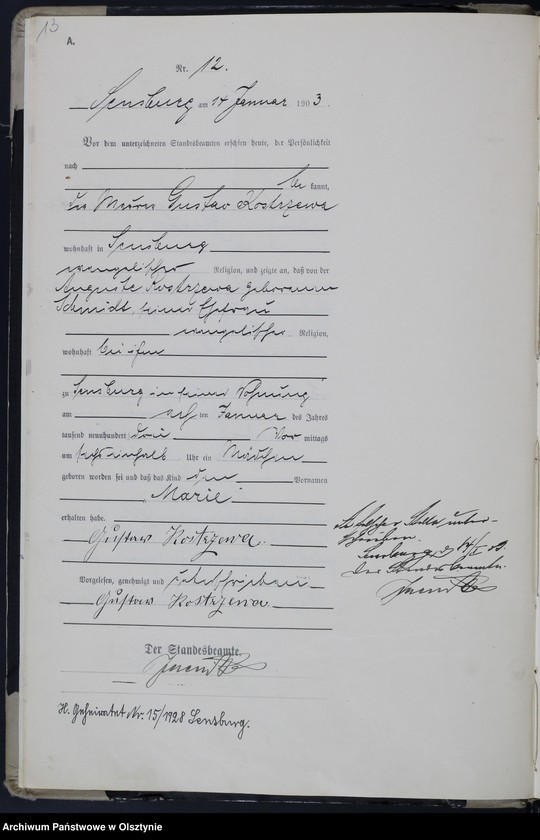 13
A.
Nr. 12.
Sensburg am 14 Januar 1903.
Vor dem unterzeichneten Standesbeamten erschien heute, der Persönlichkeit
nach
be kannt,
der Gustav Kostrzewa
wohnhaft in Sensburg
evangelischer Religion, und zeigte an, daß von der
Auguste Kostrzewa geborenen
Schmidt, seiner Ehefrau
evangelischer Religion,
wohnhaft bei ihm
zu Sensburg in seiner Wohnung
am ten Januar des Jahres
tausend neunhundert drei Vor mittags
um Uhr ein Mädchen
geboren worden sei und daß das Kind den Vornamen
Marie
erhalten habe.
Gustav Kostrzewa.
Vorgelesen, genehmigt und unterschrieben
Gustav Kostrzewa
Der Standesbeamte.
An falscher Stelle unter-
schrieben.
Sensburg, d. 14/I. 03.
Der Standesbeamte.
H. Geheiratet Nr. 15/1928 Sensburg.
Archiwum Państwowe w Olsztynie